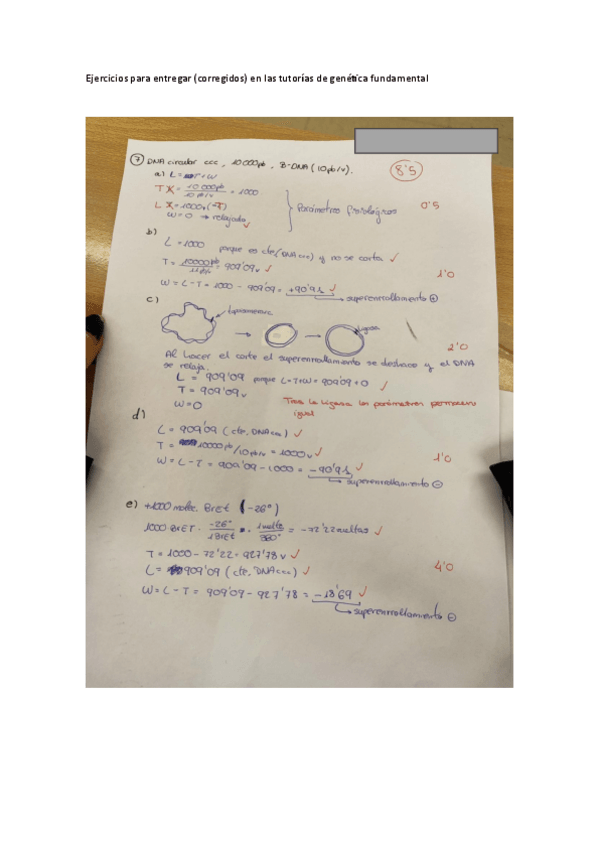 Ejercicios para entregar (corregidos) en las tutorías de genética fundamental
7 DNA circular ccc, 10000pb, B-DNA (10pb/v). 8'5
a) L = T+W
T = 10000pb / 10pb/v = 1000
L = 1000
W=0 → relajado
Parámetros fisiológicos 0'5
b)
L = 1000 porque es cte (DNAccc) y no se corta ✓
T = 10000pb / 11pb/v = 909'09v ✓ 1'0
W = L-T = 1000 - 909'09 = +90'91 ✓
superenrollamiento ⊕
c)
topoisomerasa
ligasa
2'0
Al hacer el corte el superenrollamiento se deshace y el DNA
se relaja.
L = 909'09 porque L=T+W = 909'09+0 ✓
T = 909'09v
W=0
Tras la ligasa los parámetros permanecen
igual
d)
L = 909'09 (cte, DNAccc) ✓
T = 10000pb/10pb/v = 1000v ✓ 1'0
W = L-T = 909'09-1000 = -90'91 ✓
superenrollamiento ⊖
e) +1000 moléc. BrEt (-26°)
1000 BrET · -26° / 1BrEt · 1vuelta / 360° = -72'22vueltas ✓
T = 1000-72'22 = 927'78 v ✓
L = 909'09 (cte, DNAccc) ✓ 4'0
W = L-T = 909'09 - 927'78 = -18'69 ✓
superenrollamiento ⊖